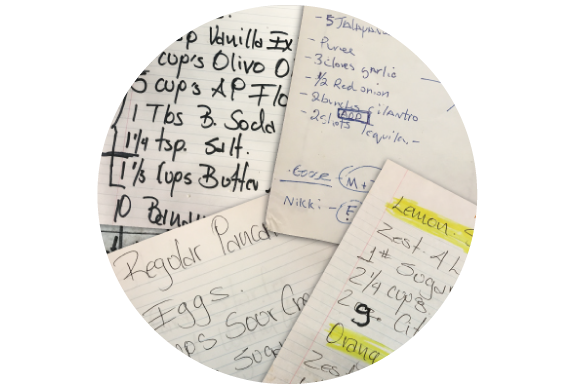 p Vanilla Ex
cup's Olivo O
5 cup's AP Flo
1 Tbs B. Soda
1 1/4 tsp. Salt.
1 1/3 Cups Butter
10 Banan
- 5 Jalapa
- Puree
- 3 cloves garlic
- 1/2 Red onion
- 2 bunches cilantro
ADD
- 2 shots tequila -
M+
Nikki -
Regular Panca
Eggs.
ups Sour Cre
Suga
Lemon. S
Zest 4 L
1# Suga
2 1/4 cup's
2 g. Cit
Orang
Zes